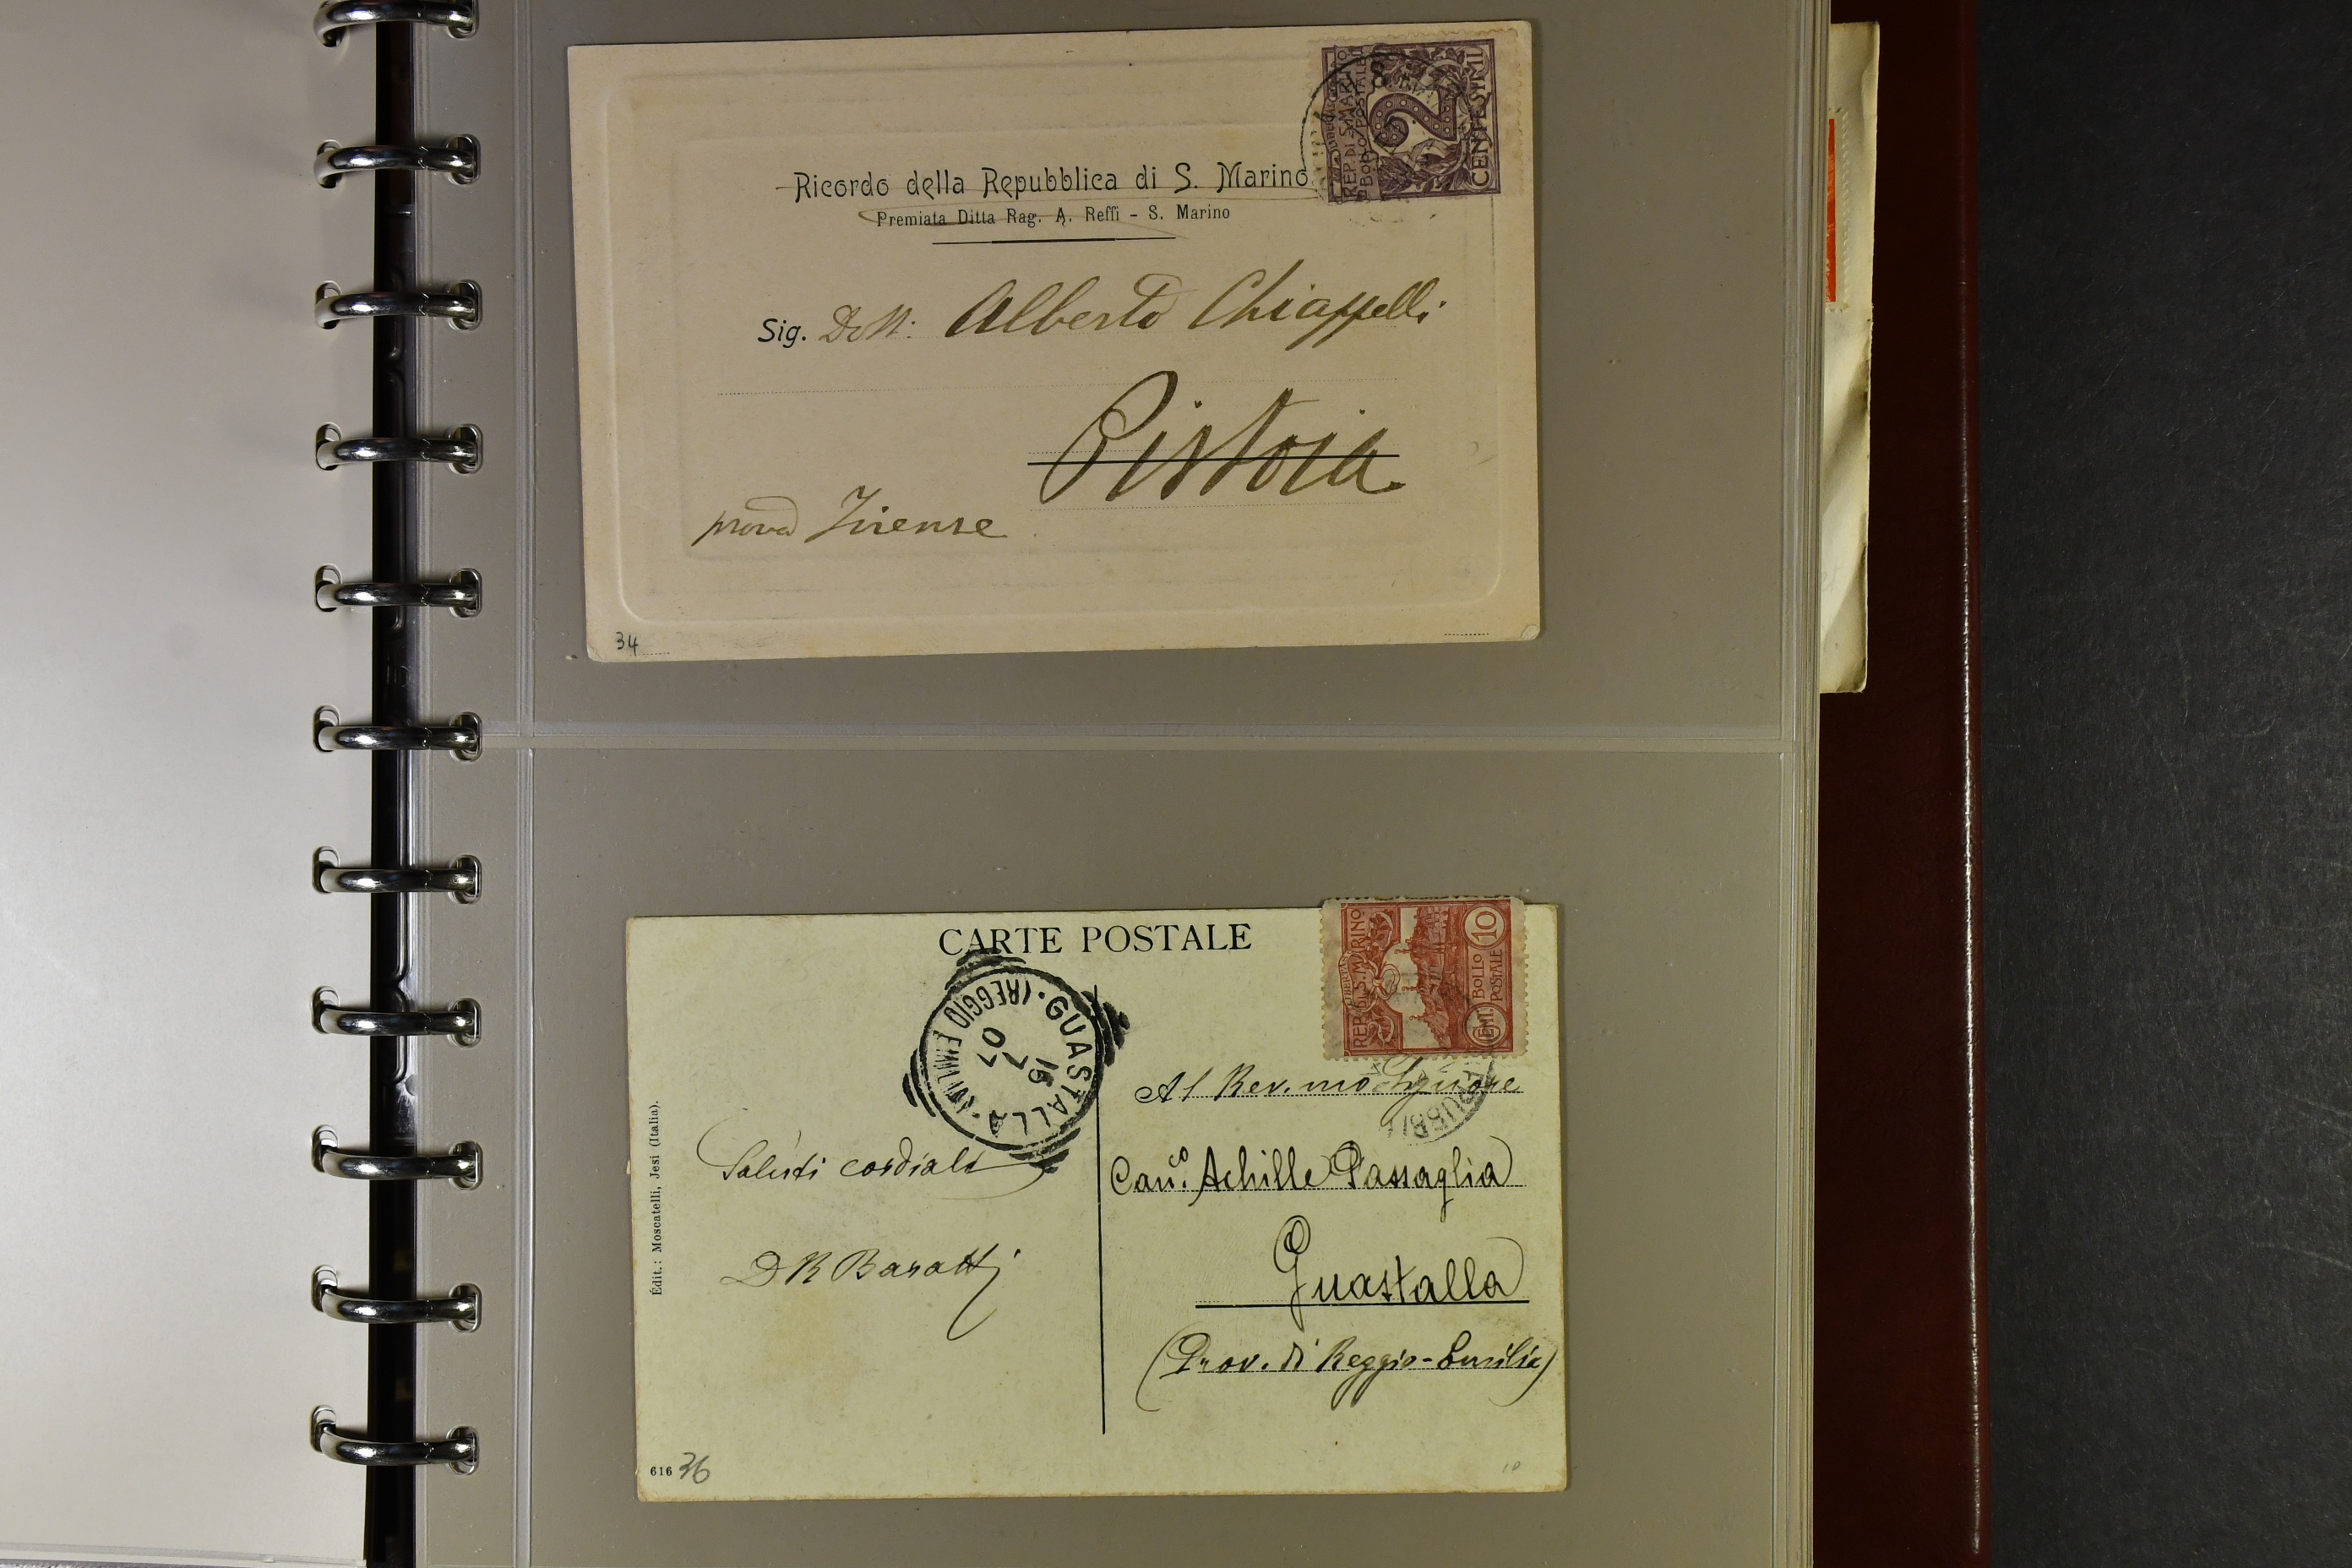 REP. DI S. MARINO
BOLLO POSTALE
2
CENTESIMI
Ricordo della Repubblica di S. Marino
Premiata Ditta Rag. A. Reffi - S. Marino
Sig. Dott. Alberto Chiappelli
Pistoia
prov. Firenze
34
CARTE POSTALE
REP. DI S. MARINO
CENT. BOLLO POSTALE 10
GUASTALLA
(REGGIO EMILIA)
16 7 07
Al Rev.mo Signore
Can.co Achille Passaglia
Guastalla
(Prov. di Reggio-Emilia)
Saluti cordiali
D R Baratti
Édit.: Moscatelli, Jesi (Italia).
616 36
10